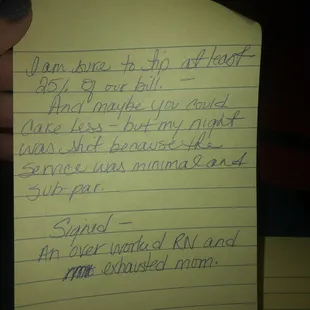 I am sure to tip at least
25% of our bill. —
And maybe you could
care less – but my night
was shit because the
service was minimal and
sub-par.
Signed –
An over worked RN and
exhausted mom.